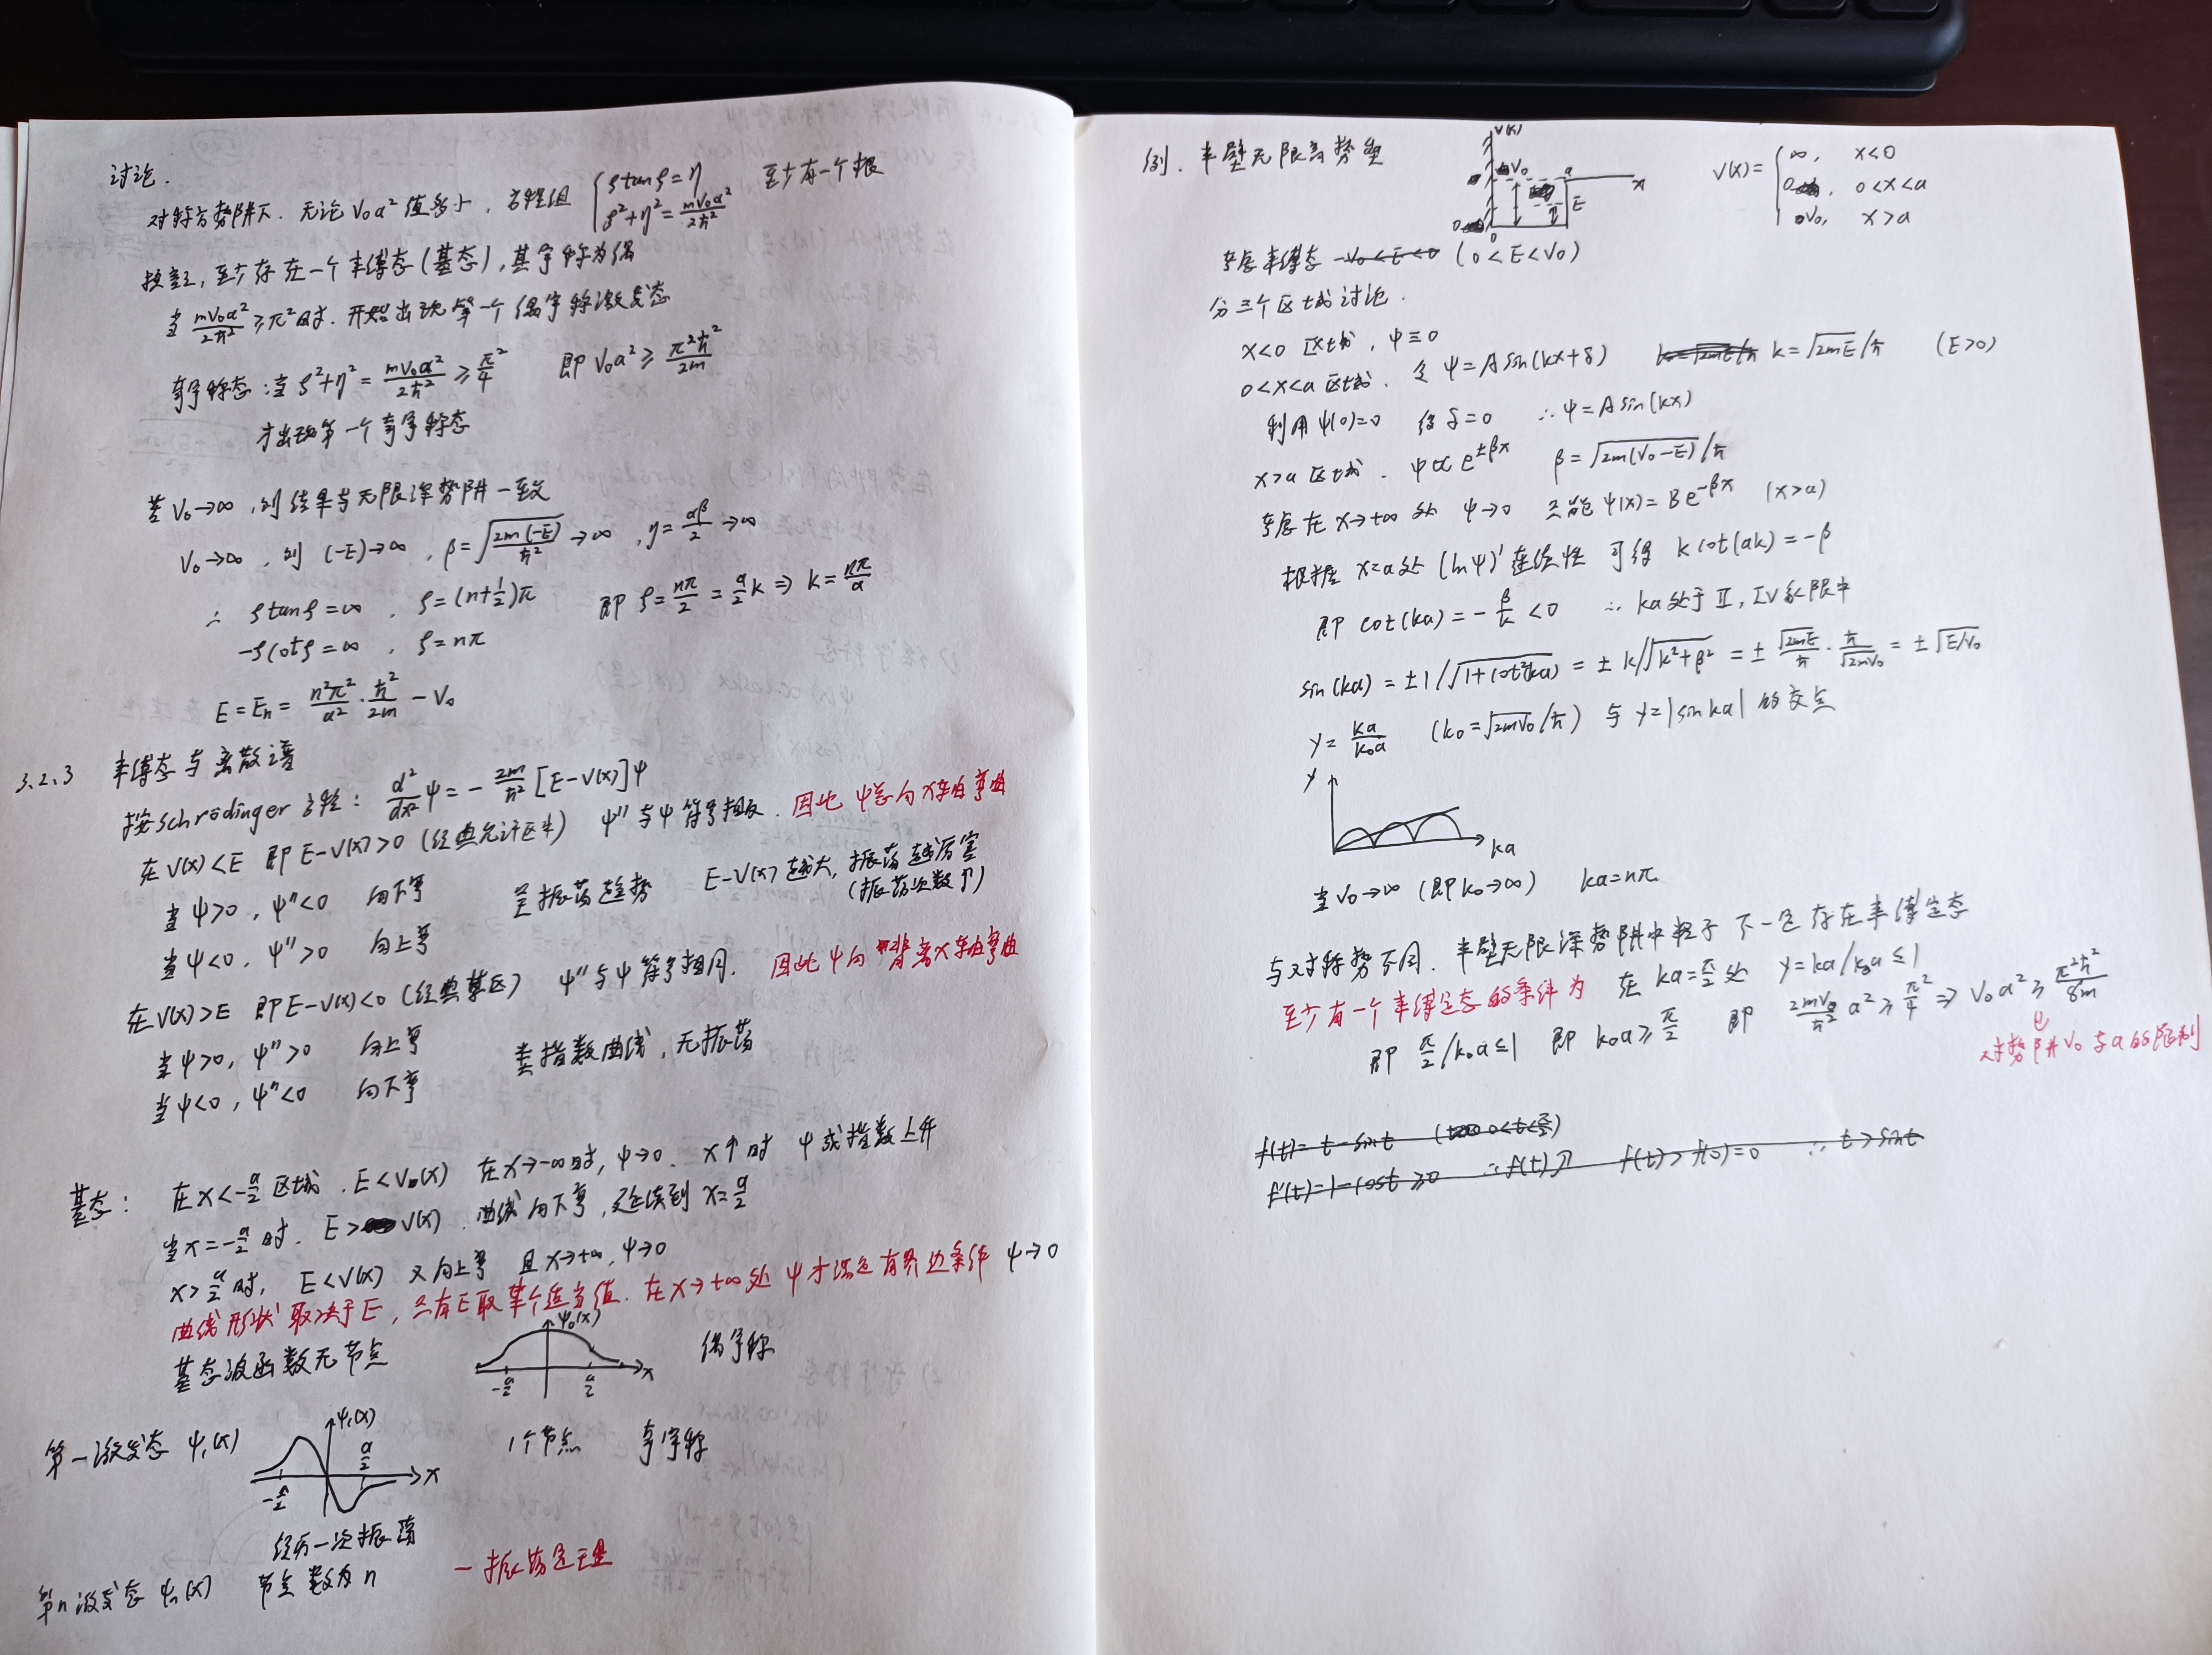 讨论.
对称方势阱下. 无论 V₀a² 值多小, 方程组 { ξtanξ=η  至少有一个根
ξ²+η²=mV₀a²/2ħ²
按理, 至少存在一个束缚态(基态), 其宇称为偶
当 mV₀a²/2ħ² ≥π² 时. 开始出现第一个偶宇称激发态
奇宇称态: 当 ξ²+η²=mV₀a²/2ħ² ≥ π²/4  即 V₀a² ≥ π²ħ²/2m
才出现第一个奇宇称态
若 V₀→∞, 则结果与无限深势阱一致
V₀→∞, 则 (-E)→∞, β=√(2m(-E)/ħ²)→∞, η=aβ/2→∞
∴ ξtanξ=∞, ξ=(n+½)π  即 ξ=nπ/2=a/2 k ⇒ k=nπ/a
-ξcotξ=∞, ξ=nπ
E=Eₙ= n²π²/a² · ħ²/2m - V₀
3.2.3 束缚态与离散谱
按schrödinger方程: d²/dx² ψ=- 2m/ħ² [E-V(x)]ψ
在V(x)<E 即E-V(x)>0 (经典允许区) ψ''与ψ符号相反. 因此ψ总向x轴弯曲
当ψ>0, ψ''<0 向下弯  呈振荡趋势  E-V(x)越大, 振荡越厉害
当ψ<0, ψ''>0 向上弯  (振荡次数↑)
在V(x)>E 即E-V(x)<0 (经典禁区) ψ''与ψ符号相同. 因此ψ向背离x轴弯曲
当ψ>0, ψ''>0 向上弯  类指数曲线, 无振荡
当ψ<0, ψ''<0 向下弯
基态: 在x<-a/2区域, E<V(x) 在x→-∞时, ψ→0. x↑时 ψ或指数上升
当x=-a/2时. E>V(x). 曲线向下弯, 延续到 x=a/2
x>a/2时, E<V(x) 又向上弯 且x→+∞, ψ→0
曲线形状取决于E, 只有E取某个适当值. 在x→+∞处 ψ才满足有界边条件 ψ→0
基态波函数无节点  ψ₀(x)  -a/2  a/2  x  偶宇称
第一激发态 ψ₁(x)  ψ₁(x)  -a/2  a/2  x  1个节点  奇宇称
经历一次振荡
第n激发态 ψₙ(x)  节点数为n  —振荡定理
例. 半壁无限高势垒  V(x)  V₀  a  x  E  0  V(x)= { ∞, x<0
0, 0<x<a
V₀, x>a
考虑束缚态 -V₀<E<0 (0<E<V₀)
分三个区域讨论.
x<0区域, ψ≡0
0<x<a区域. 令ψ=Asin(kx+δ)  k=√2mE/ħ  k=√2mE/ħ  (E>0)
利用ψ(0)=0 得δ=0  ∴ψ=Asin(kx)
x>a区域. ψ∝e^±βx  β=√2m(V₀-E)/ħ
考虑在x→+∞处 ψ→0 只能ψ(x)=Be^-βx (x>a)
根据x=a处 (lnψ)'连续性 可得 kcot(ak)=-β
即 cot(ka)=-β/k<0  ∴ka处于Ⅱ, Ⅳ象限中
sin(ka)=±1/√(1+cot²(ka))=±k/√(k²+β²)=±√2mE/ħ · ħ/√2mV₀=±√E/V₀
y=ka/k₀a  (k₀=√2mV₀/ħ) 与 y=|sinka|的交点
y  ka
当V₀→∞ (即k₀→∞)  ka=nπ
与对称势不同. 半壁无限深势阱中粒子不一定存在束缚定态
至少有一个束缚定态的条件为 在ka=π/2处 y=ka/k₀a≤1
即 π/2/k₀a≤1 即 k₀a≥π/2 即 2mV₀/ħ² a²≥π²/4 ⇒ V₀a²≥π²ħ²/8m
对势阱V₀与a的限制
f(t)=t-sint (0<t<π/2)
f'(t)=1-cost≥0  ∴f(t)↗  f(t)>f(0)=0  ∴ t>sint